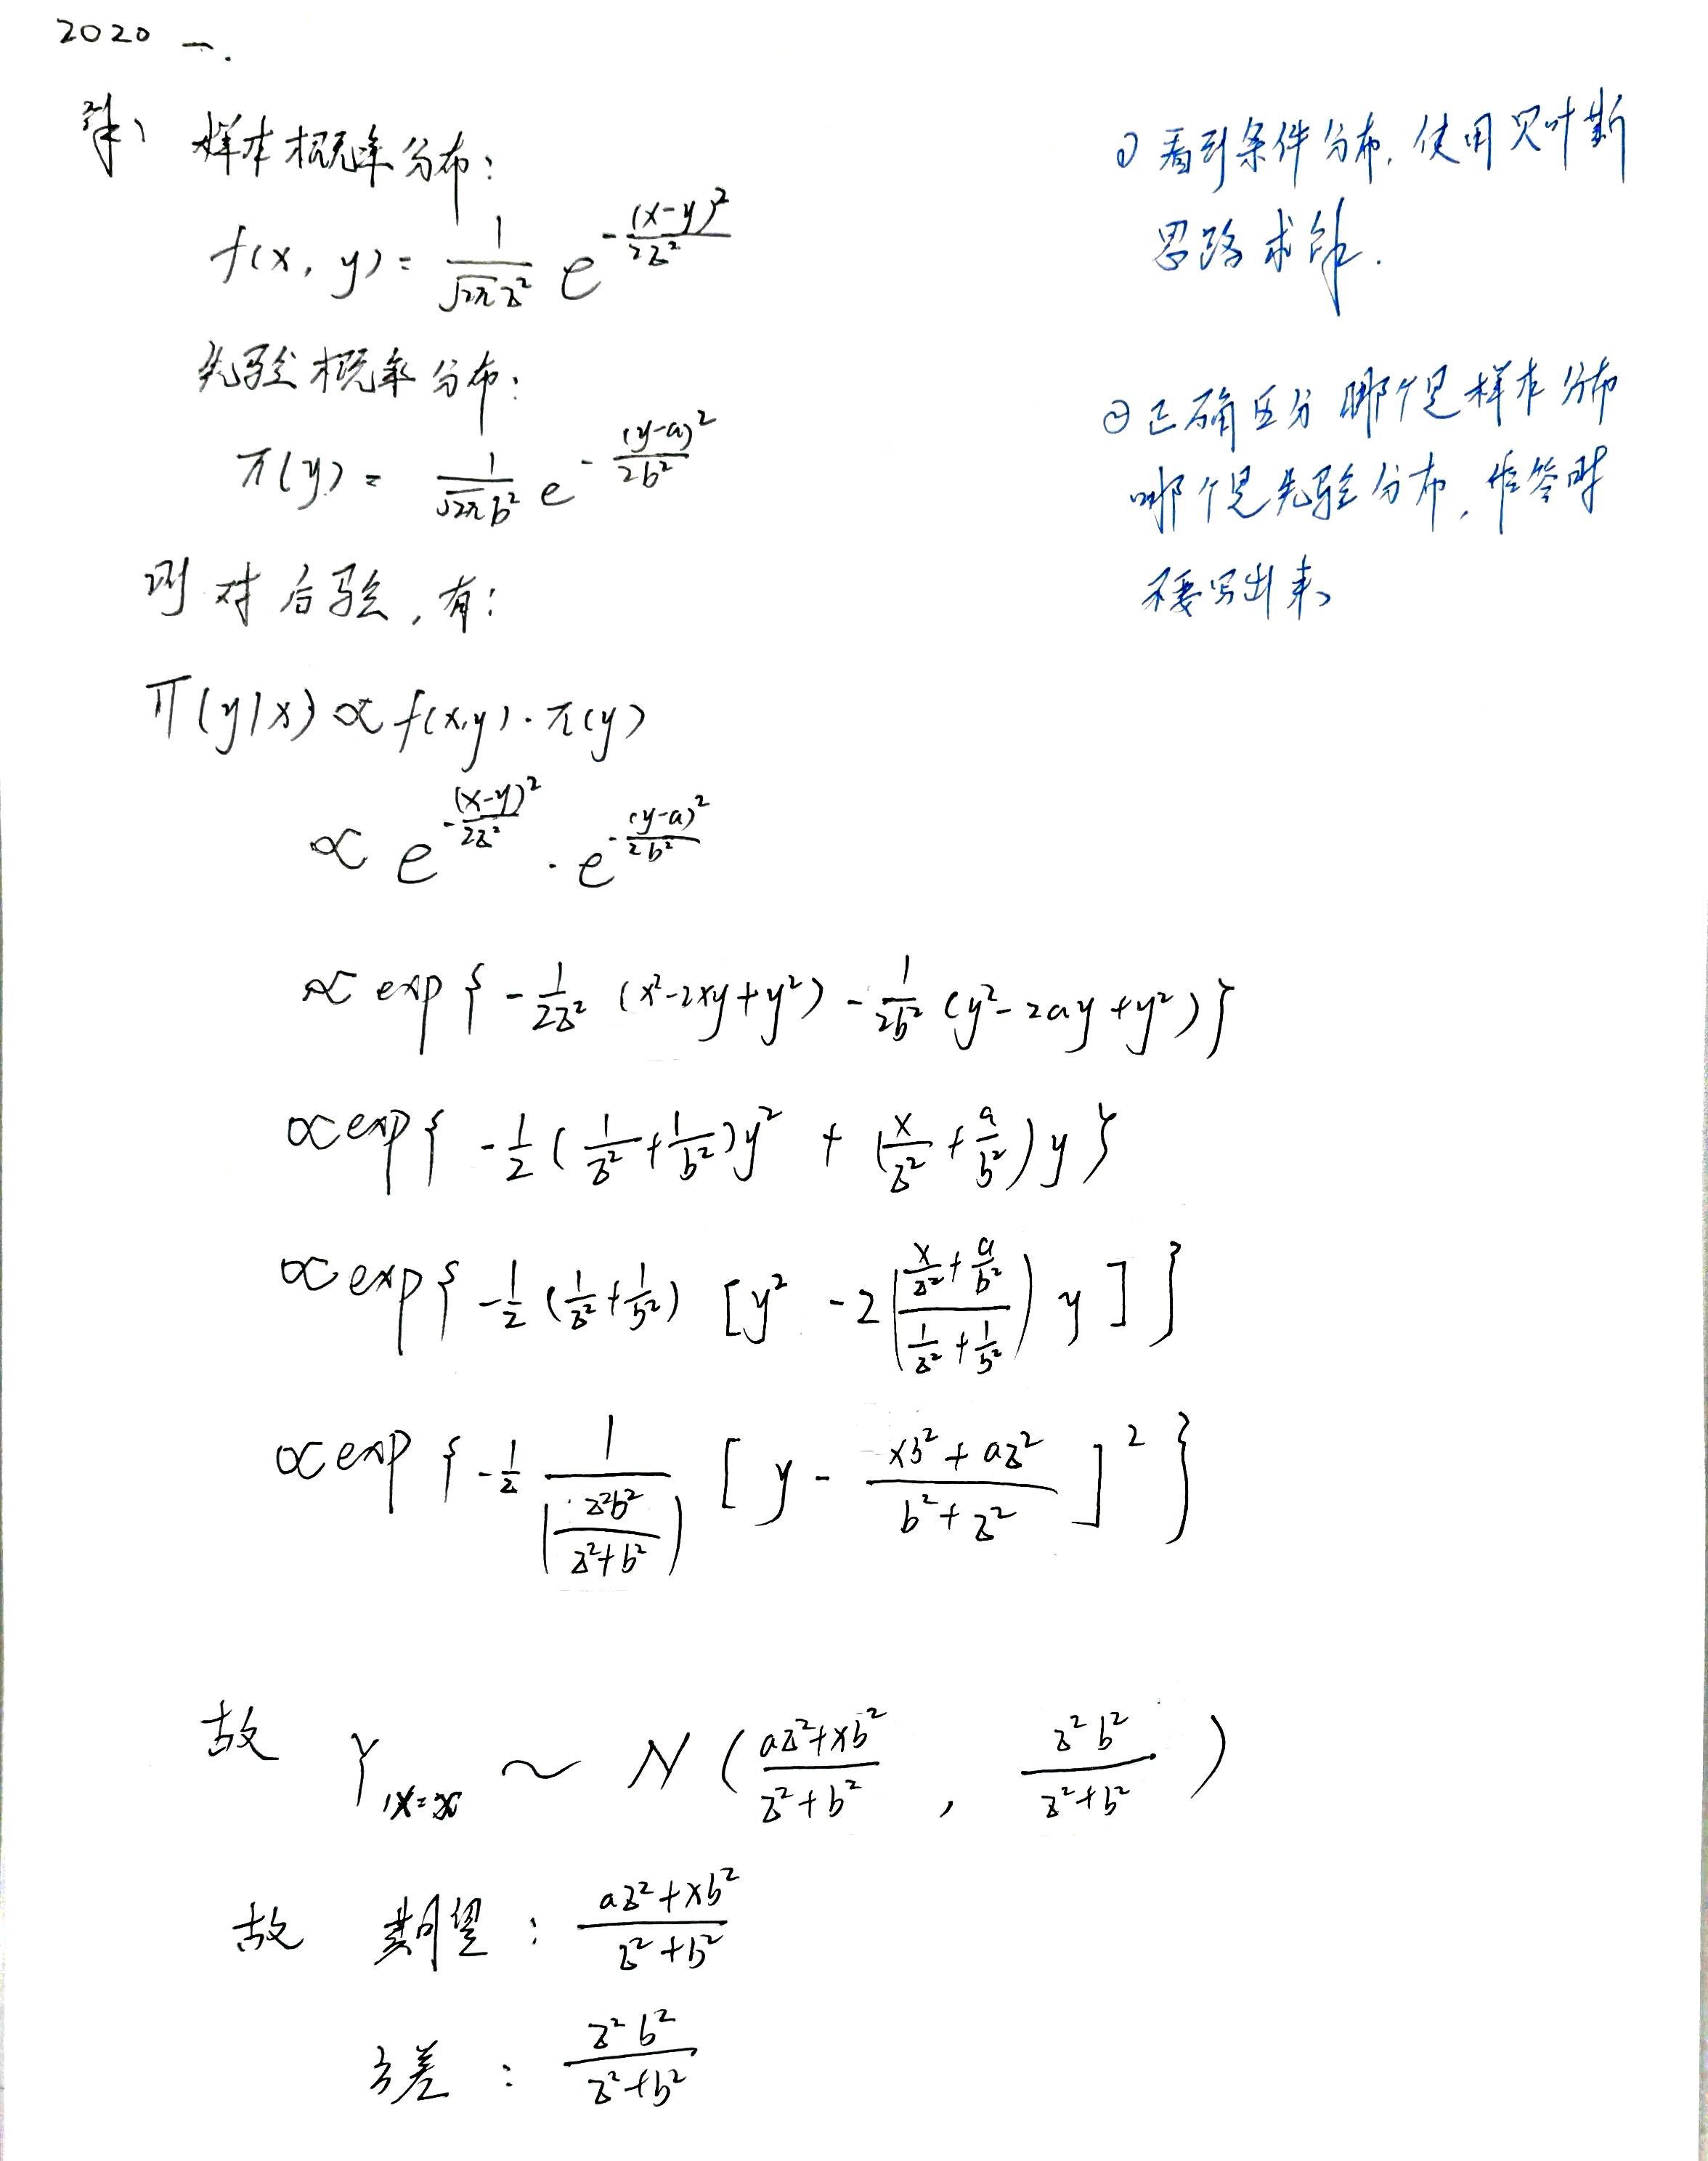 2020 一.
解: 样本概率分布:
f(x, y) = \frac{1}{\sqrt{2π}z^2} e^{-\frac{(x-y)^2}{2z^2}}
先验概率分布:
π(y) = \frac{1}{\sqrt{2π}b^2} e^{-\frac{(y-a)^2}{2b^2}}
则对后验,有:
π(y|x) ∝ f(x,y)·π(y)
∝ e^{-\frac{(x-y)^2}{2z^2}} · e^{-\frac{(y-a)^2}{2b^2}}
∝ exp{ -\frac{1}{2z^2} (x^2-2xy+y^2) - \frac{1}{2b^2} (y^2-2ay+y^2) }
∝ exp{ -\frac{1}{2} (\frac{1}{z^2}+\frac{1}{b^2})y^2 + (\frac{x}{z^2}+\frac{a}{b^2})y }
∝ exp{ -\frac{1}{2} (\frac{1}{z^2}+\frac{1}{b^2}) [y^2 - 2(\frac{\frac{x}{z^2}+\frac{a}{b^2}}{\frac{1}{z^2}+\frac{1}{b^2}}) y ] }
∝ exp{ -\frac{1}{2} \frac{1}{(\frac{z^2b^2}{z^2+b^2})} [ y - \frac{xb^2+az^2}{b^2+z^2} ]^2 }
故 Y_{|X=x} ~ N ( \frac{az^2+xb^2}{z^2+b^2} , \frac{z^2b^2}{z^2+b^2} )
故 期望: \frac{az^2+xb^2}{z^2+b^2}
方差: \frac{z^2b^2}{z^2+b^2}
① 看到条件分布, 使用贝叶斯
思路求解.
② 正确区分哪个是样本分布
哪个是先验分布, 作答时
要写出来